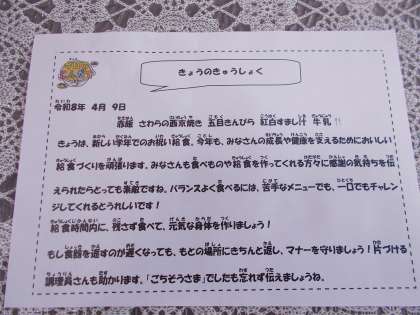 きょうのきゅうしょく
令和8年 4月 9日
赤飯 さわらの西京焼き 五目きんぴら 紅白すまし汁 牛乳
きょうは、新しい学年でのお祝い給食。今年も、みなさんの成長や健康を支えるためにおいしい
給食づくりを頑張ります。みなさんも食べものや給食を作ってくれる方々に感謝の気持ちを伝
えられたらとっても素敵ですね。バランスよく食べるには、苦手なメニューでも、一口でもチャレン
ジしてくれるとうれしいです！
給食時間内に、残さず食べて、元気な身体を作りましょう！
もし食器を返すのが遅くなっても、もとの場所にきちんと返し、マナーを守りましょう！片づける
調理員さんも助かります。「ごちそうさま」でしたも忘れず伝えましょうね。